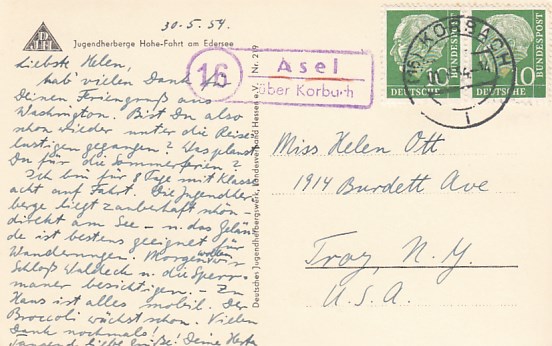 30.5.54.
Jugendherberge Hohe-Fahrt am Edersee
Liebste Helen,
hab' vielen Dank für
Deinen Feriengruß aus
Washington. Bist Du also
schon wieder unter die Reise-
lustigen gegangen? Was planst
Du für die Sommerferien?
Ich bin für 8 Tage mit Klasse
acht auf Fahrt. Die Jugendher-
berge liegt zauberhaft schön -
direkt am See - u. das Gelän-
de ist bestens geeignet für
Wanderungen. Morgen wollen wir
Schloß Waldeck u. die Sperr-
mauer besichtigen. - Zu
Haus ist alles mobil. Der
Broccoli wächst schon. Vielen
Dank nochmals!
Tausend liebe Grüße! Deine Herta
Deutsches Jugendherbergswerk, Landesverband Hessen e.V. Nr. 219
16
Asel
über Korbach
(16) KORBACH
DEUTSCHE BUNDESPOST
10
DEUTSCHE BUNDESPOST
10
Miss Helen Ott
1914 Burdett Ave
Troy, N.Y.
U.S.A.